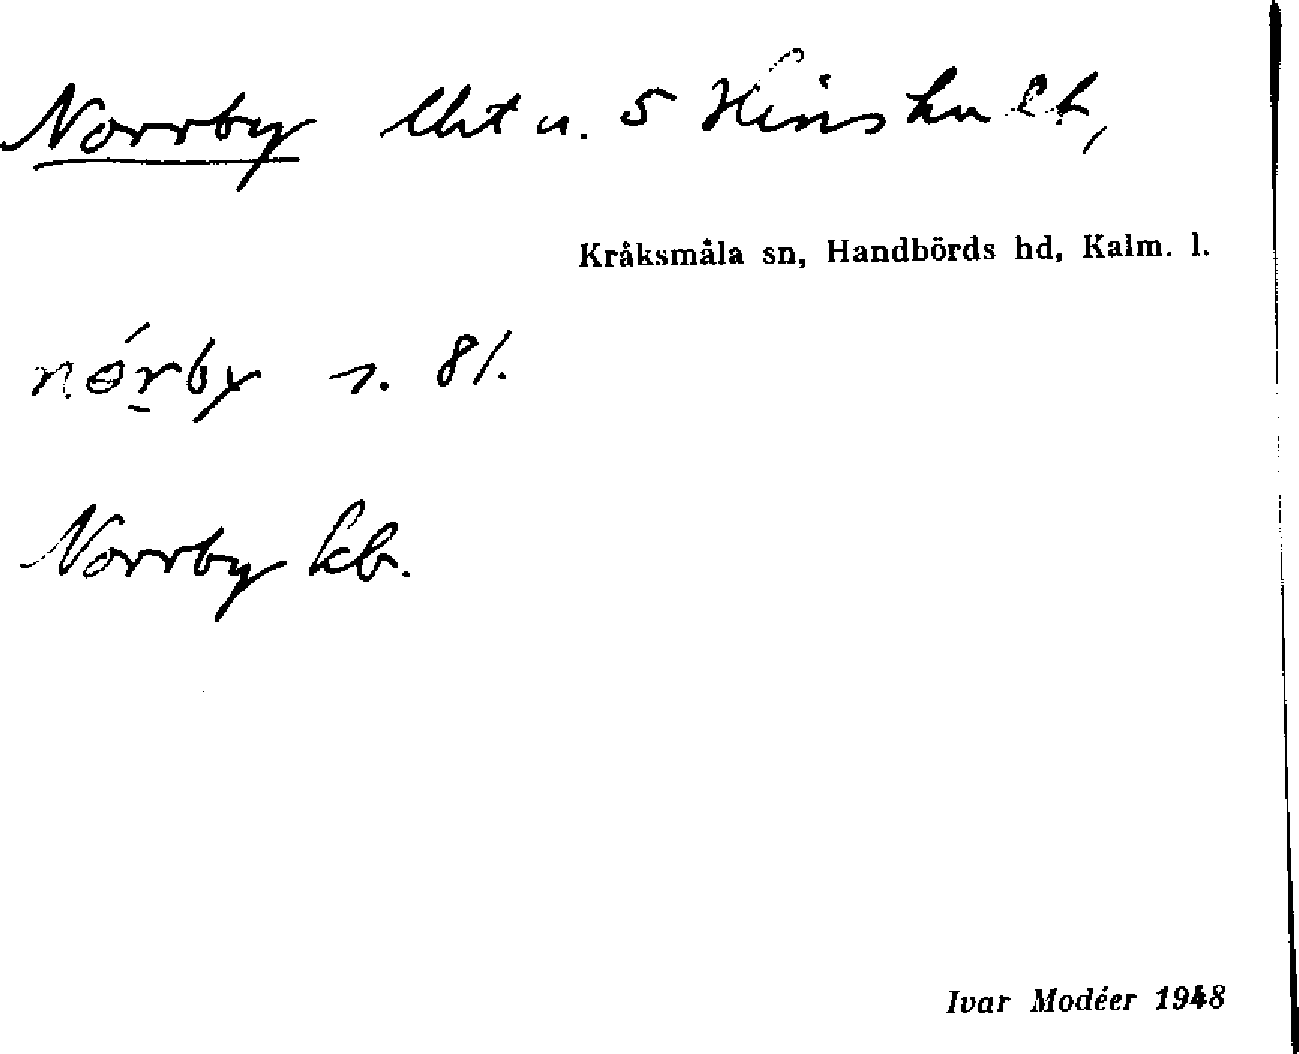 Norrby lht u. 5 Hinshult,
Kråksmåla sn, Handbörds hd, Kalm. l.
nɵ́rby s. 81.
Norrby kb.
Ivar Modéer 1948